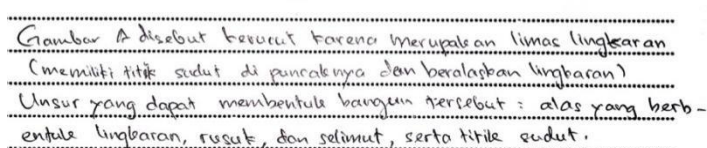 Gambar A disebut kerucut karena merupakan limas lingkaran
(memiliki titik sudut di puncaknya dan beralaskan lingkaran)
Unsur yang dapat membentuk bangun tersebut : alas yang berb-
entuk lingkaran, rusuk, dan selimut, serta titik sudut.